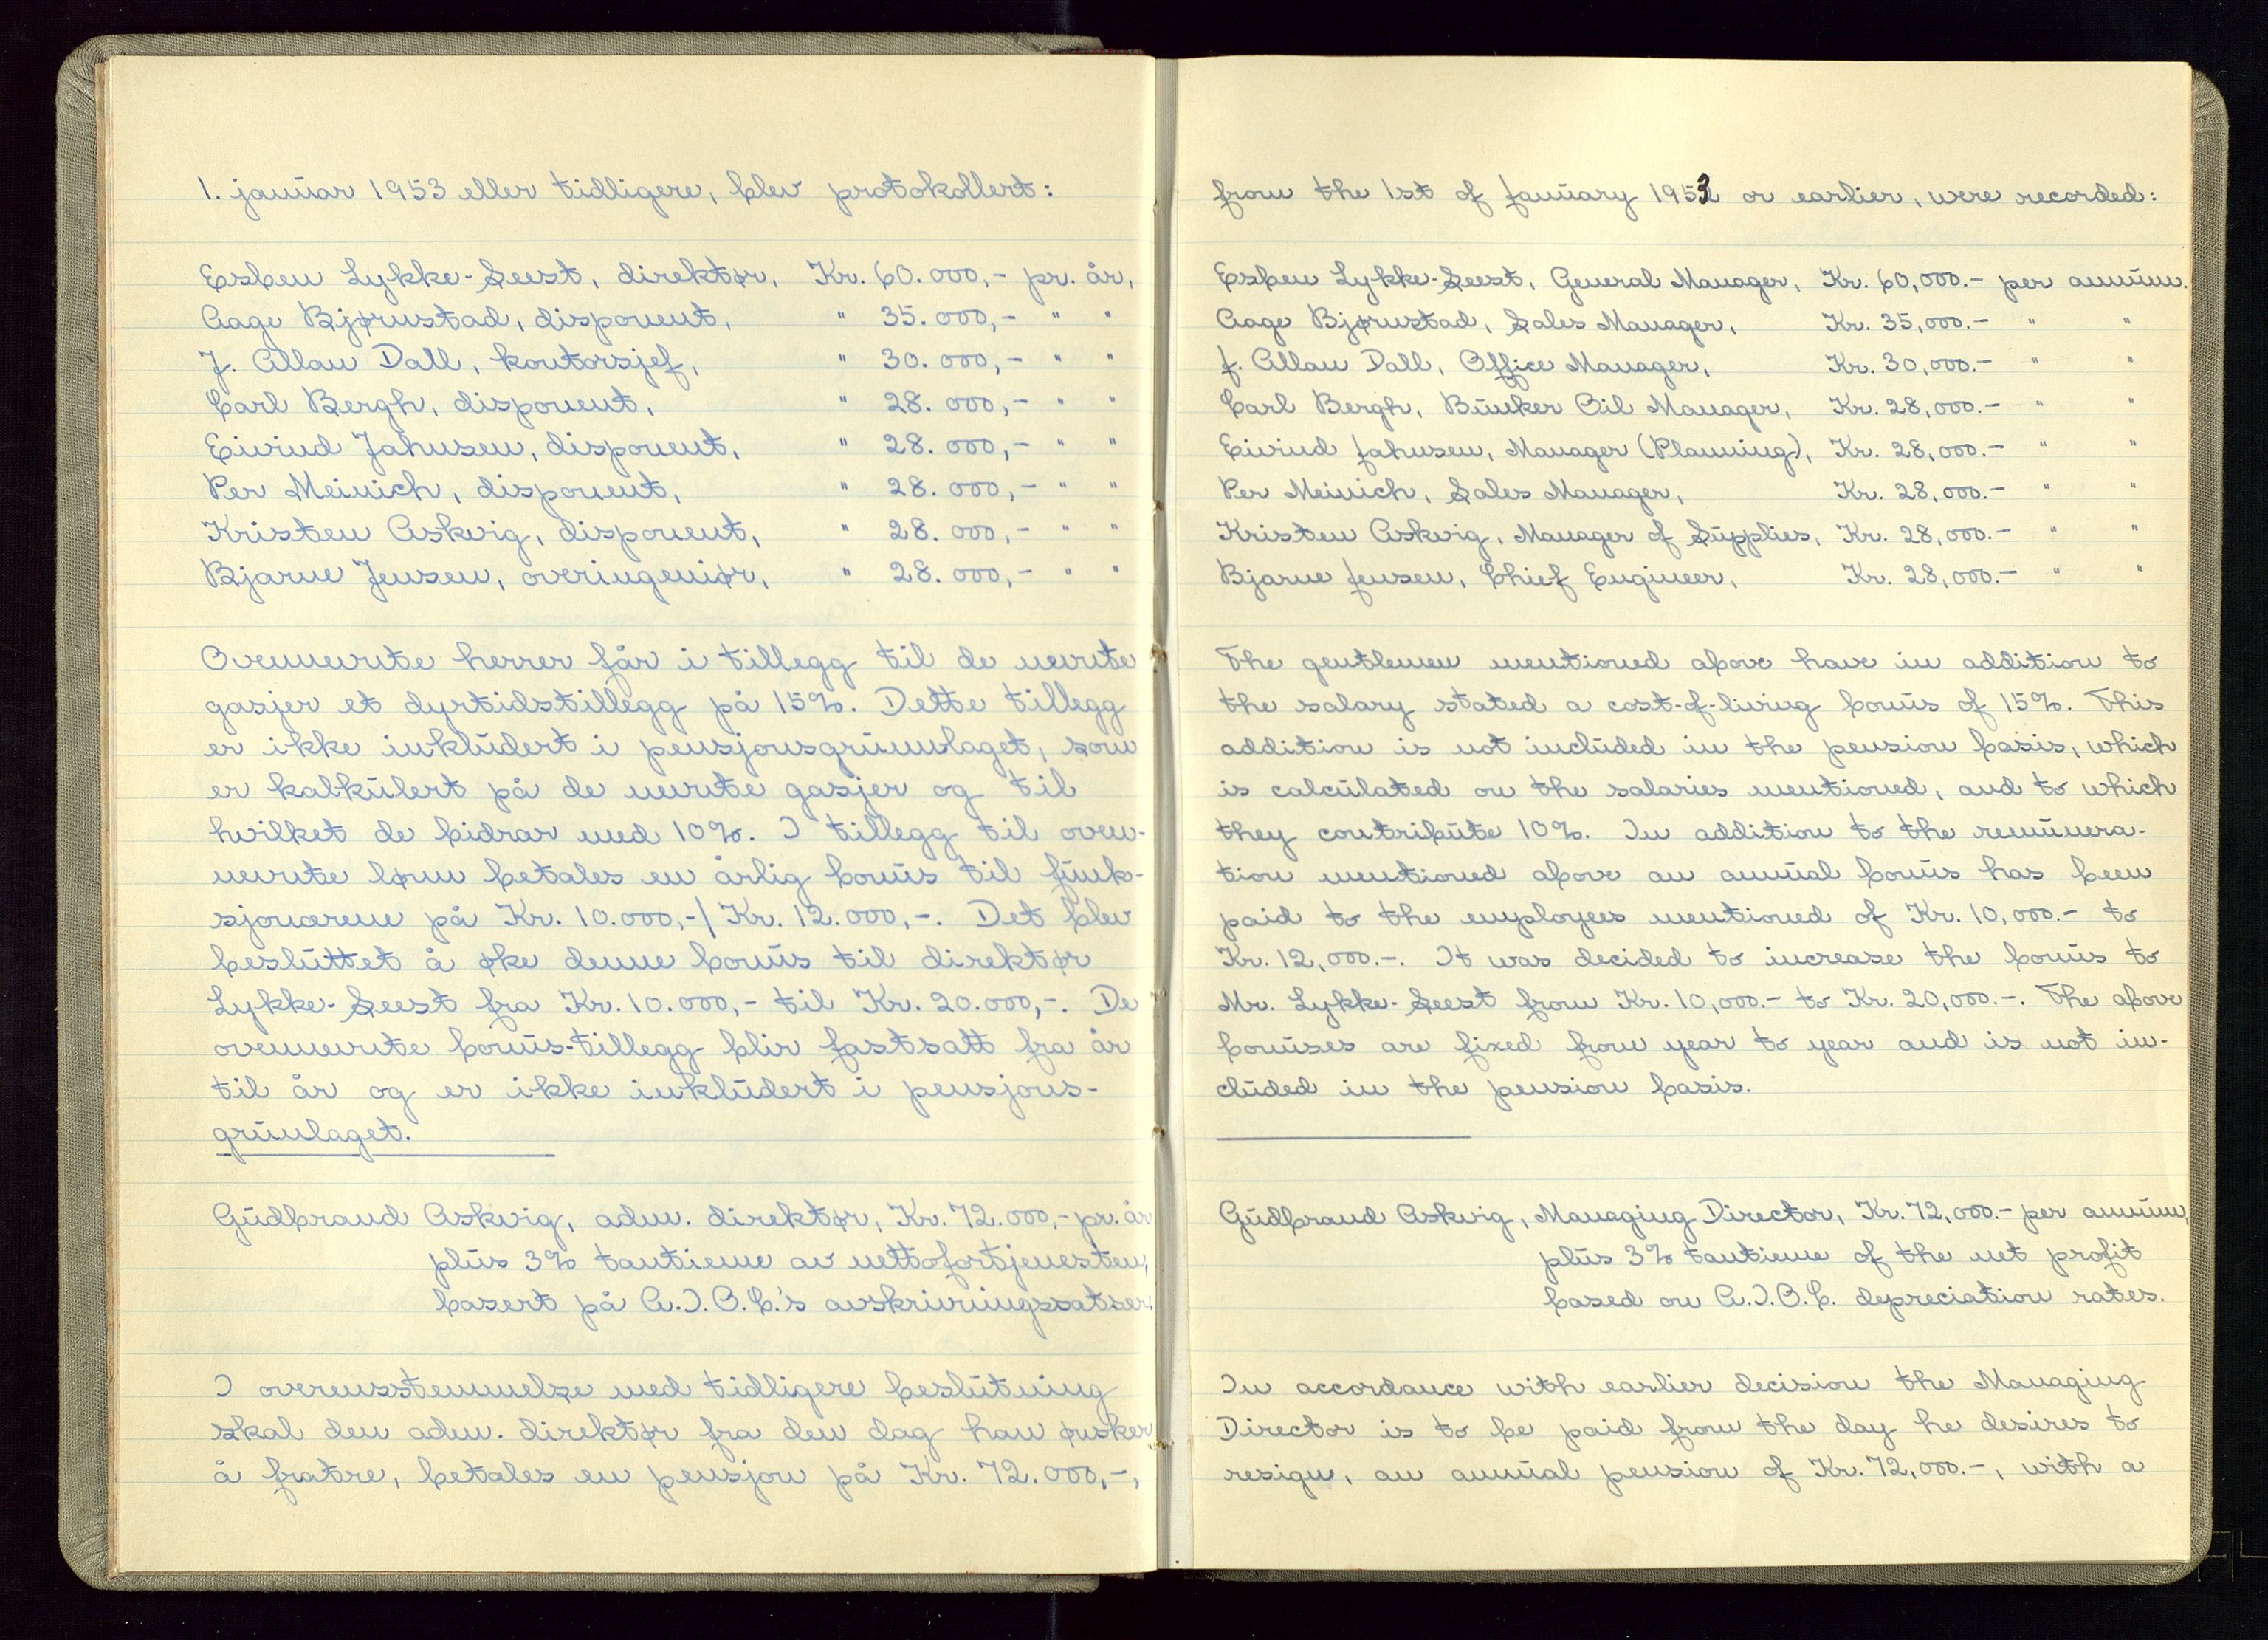 1. januar 1953 eller tidligere, blev protokollert:
Esben Lykke-Seest, direktør, Kr. 60.000,- pr. år,
Aage Bjørnstad, disponent, " 35.000,- " "
J. Allan Dall, kontorsjef, " 30.000,- " "
Carl Bergh, disponent, " 28.000,- " "
Eivind Jahnsen, disponent, " 28.000,- " "
Per Meinich, disponent, " 28.000,- " "
Kristen Askvig, disponent, " 28.000,- " "
Bjarne Jensen, overingeniør, " 28.000,- " "
Ovennevnte herrer får i tillegg til de nevnte
gasjer et dyrtidstillegg på 15%. Dette tillegg
er ikke inkludert i pensjonsgrunnlaget, som
er kalkulert på de nevnte gasjer og til
hvilket de bidrar med 10%. I tillegg til oven-
nevnte lønn betales en årlig bonus til funk-
sjonærene på Kr. 10.000,-/Kr. 12.000,-. Det blev
besluttet å øke denne bonus til direktør
Lykke-Seest fra Kr. 10.000,- til Kr. 20.000,-. De
ovennevnte bonus-tillegg blir fastsatt fra år
til år og er ikke inkludert i pensjons-
grunlaget.
Gudbrand Askvig, adm. direktør, Kr. 72.000,- pr. år
plus 3% tantieme av nettofortjenesten,
basert på A.I.O.C.'s avskrivningssatser.
I overensstemmelse med tidligere beslutning
skal den adm. direktør fra den dag han ønsker
å fratre, betales en pensjon på Kr. 72.000,-,
from the 1st of January 1953 or earlier, were recorded:
Esben Lykke-Seest, General Manager, Kr. 60,000.- per annum.
Aage Bjørnstad, Sales Manager, Kr. 35,000.- " "
J. Allan Dall, Office Manager, Kr. 30,000.- " "
Carl Bergh, Bunker Oil Manager, Kr. 28,000.- " "
Eivind Jahnsen, Manager (Planning), Kr. 28,000.- " "
Per Meinich, Sales Manager, Kr. 28,000.- " "
Kristen Askvig, Manager of Supplies, Kr. 28,000.- " "
Bjarne Jensen, Chief Engineer, Kr. 28,000.- " "
The gentlemen mentioned above have in addition to
the salary stated a cost-of-living bonus of 15%. This
addition is not included in the pension basis, which
is calculated on the salaries mentioned, and to which
they contribute 10%. In addition to the remunera-
tion mentioned above an annual bonus has been
paid to the employees mentioned of Kr. 10,000.- to
Kr. 12,000.-. It was decided to increase the bonus to
Mr. Lykke-Seest from Kr. 10,000.- to Kr. 20,000.-. The above
bonuses are fixed from year to year and is not in-
cluded in the pension basis.
Gudbrand Askvig, Managing Director, Kr. 72,000.- per annum,
plus 3% tantieme of the net profit
based on A.I.O.C. depreciation rates.
In accordance with earlier decision the Managing
Director is to be paid from the day he desires to
resign, an annual pension of Kr. 72,000.-, with a